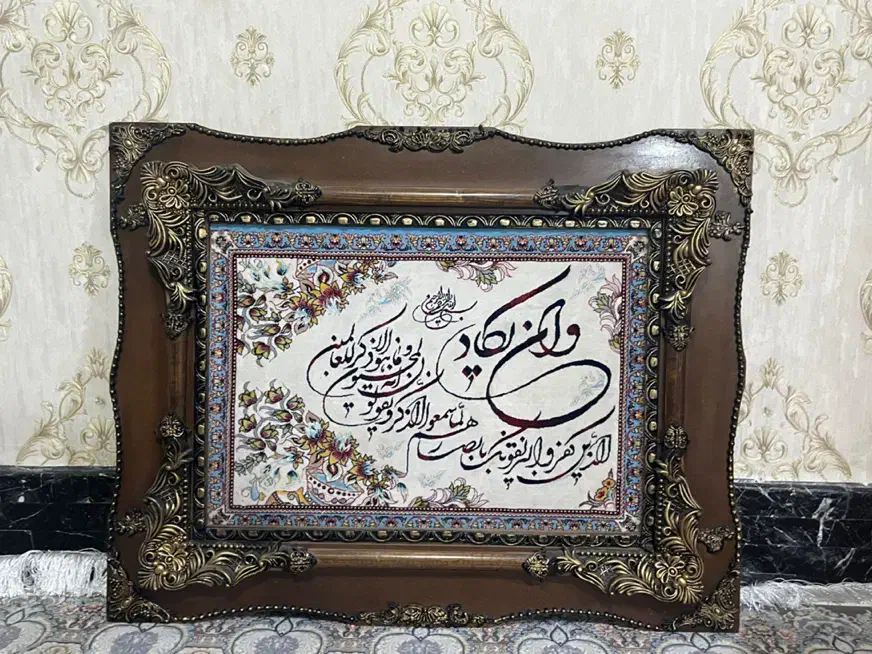 بسم الله الرحمن الرحیم
وان یکاد
الذین کفروا لیزلقونک بابصارهم
لمّا سمعوا الذکر و یقولون
انه لمجنون
و ما هو الا ذکر للعالمین